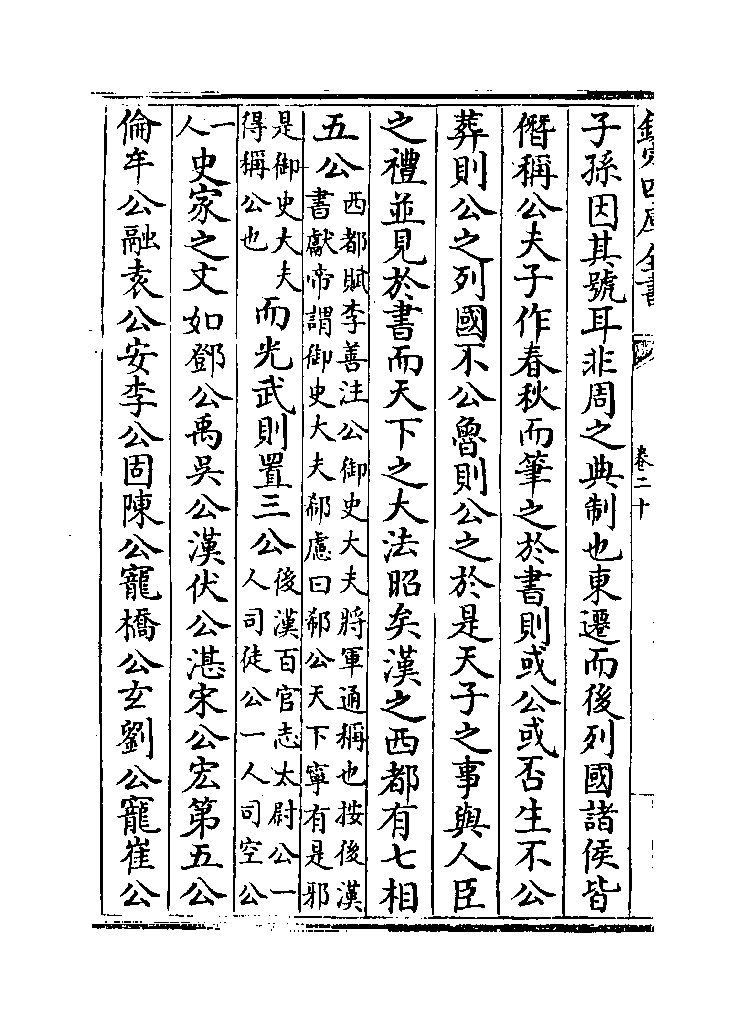 欽定四庫全書 卷二十
子孫因其號耳非周之典制也東遷而後列國諸侯皆
僭稱公夫子作春秋而筆之於書則或公或否生不公
葬則公之列國不公魯則公之於是天子之事與人臣
之禮並見於書而天下之大法昭矣漢之西都有七相
五公西都賦李善注公御史大夫將軍通稱也按後漢書獻帝謂御史大夫郗慮曰郗公天下寧有是邪
是御史大夫得稱公也而光武則置三公後漢百官志太尉公一人司徒公一人司空公
一人史家之文如鄧公禹吳公漢伏公湛宋公宏第五公
倫牟公融袁公安李公固陳公寵橋公玄劉公寵崔公